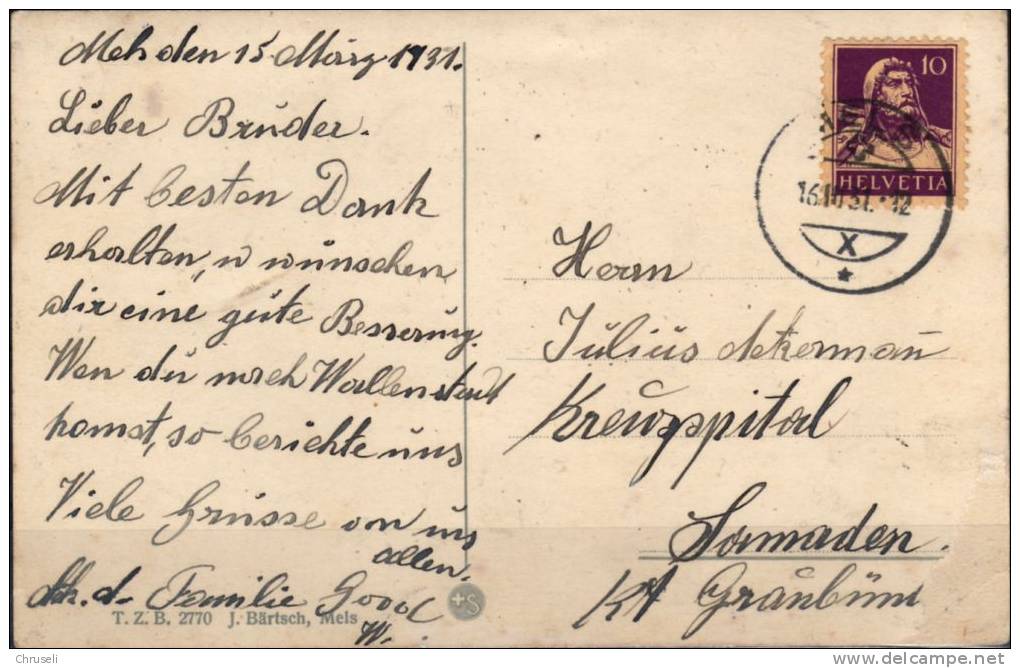 Mels den 15 März 1931.
Lieber Bruder.
Mit besten Dank
erhalten, u wünschen
dir eine gute Besserung.
Wen du nach Wallenstadt
komst, so berichte uns
Viele Grüsse von uns
allen.
Familie Good
W..
T. Z. B. 2770 J. Bärtsch, Mels
+S
10
HELVETIA
16.III.31.-12
X
Herrn
Julius Ackermañ
Kreuzspital
Samaden.
Kt Graubünd
Chruseli